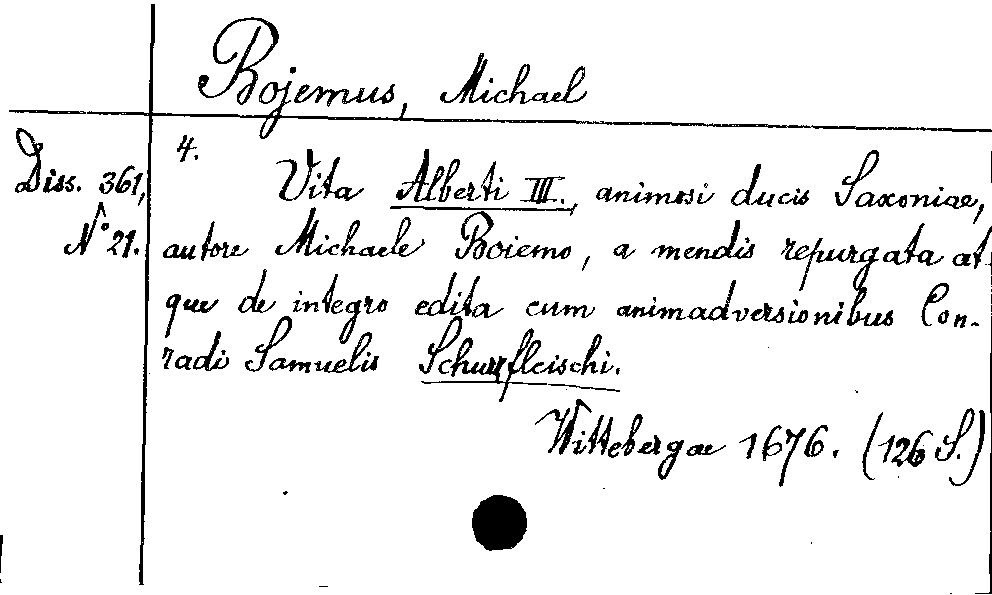 Bojemus, Michael
Diss. 361,
N° 21.
4.
Vita Alberti III., animosi ducis Saxoniae,
autore Michaele Boiemo, a mendis repurgata at-
que de integro edita cum animadversionibus Con-
radi Samuelis Schurzfleischi.
Wittebergae 1676. (126 S.)